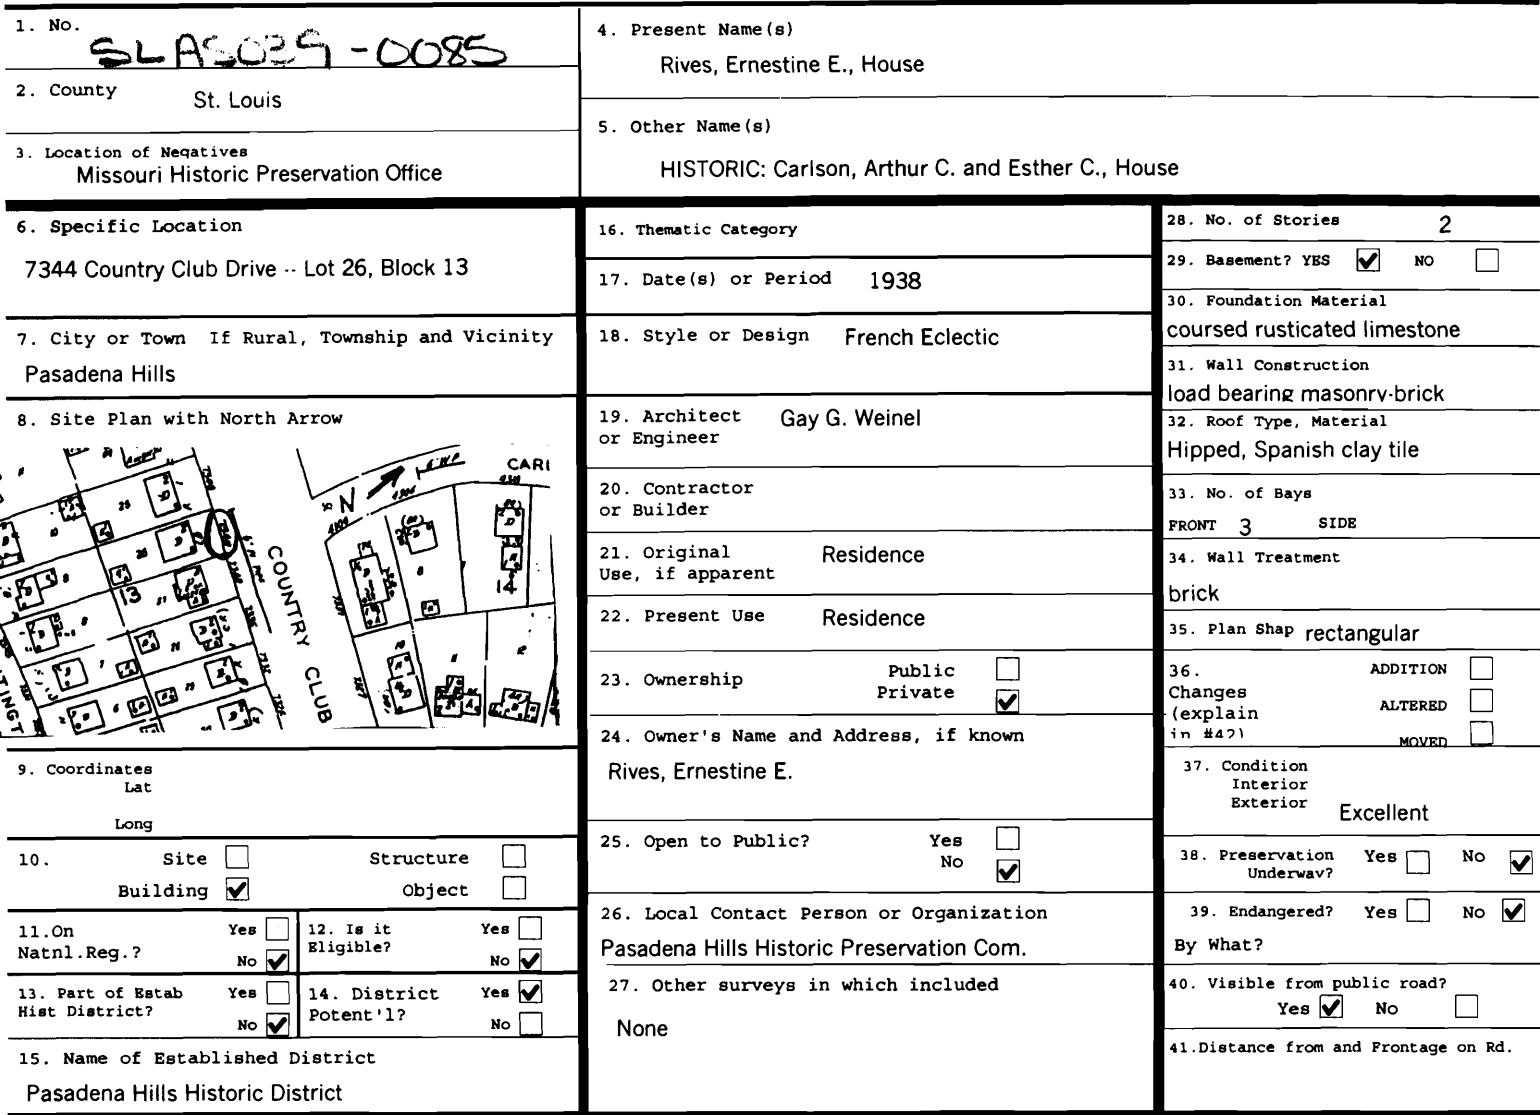 1. No.
SLAS039-0085
2. County St. Louis
3. Location of Negatives
Missouri Historic Preservation Office
4. Present Name(s)
Rives, Ernestine E., House
5. Other Name(s)
HISTORIC: Carlson, Arthur C. and Esther C., House
6. Specific Location
7344 Country Club Drive -- Lot 26, Block 13
7. City or Town If Rural, Township and Vicinity
Pasadena Hills
8. Site Plan with North Arrow
N
CARL
COUNTRY CLUB
13
14
TINGT
9. Coordinates
Lat
Long
10. Site Structure
Building Object
11.On Natnl.Reg.? Yes No
12. Is it Eligible? Yes No
13. Part of Estab Hist District? Yes No
14. District Potent'l? Yes No
15. Name of Established District
Pasadena Hills Historic District
16. Thematic Category
17. Date(s) or Period 1938
18. Style or Design French Eclectic
19. Architect or Engineer Gay G. Weinel
20. Contractor
or Builder
21. Original Use, if apparent Residence
22. Present Use Residence
23. Ownership Public
Private
24. Owner's Name and Address, if known
Rives, Ernestine E.
25. Open to Public? Yes
No
26. Local Contact Person or Organization
Pasadena Hills Historic Preservation Com.
27. Other surveys in which included
None
28. No. of Stories 2
29. Basement? YES NO
30. Foundation Material
coursed rusticated limestone
31. Wall Construction
load bearing masonry-brick
32. Roof Type, Material
Hipped, Spanish clay tile
33. No. of Bays
FRONT 3 SIDE
34. Wall Treatment
brick
35. Plan Shap rectangular
36. Changes (explain in #42)
ADDITION
ALTERED
MOVED
37. Condition
Interior
Exterior Excellent
38. Preservation Underway? Yes No
39. Endangered? Yes No
By What?
40. Visible from public road?
Yes No
41.Distance from and Frontage on Rd.